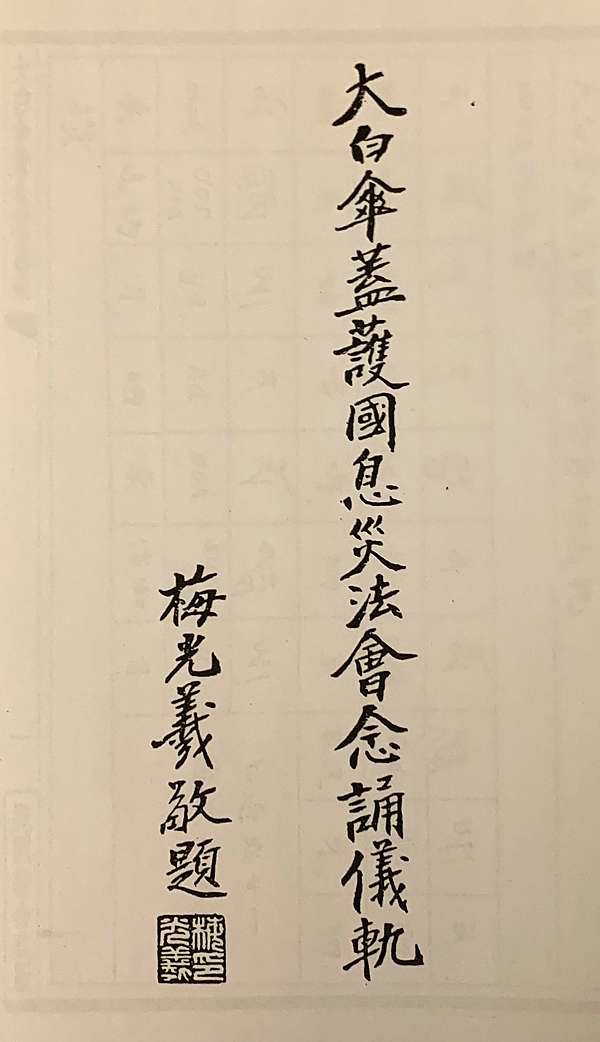 大白傘蓋護國息災法會念誦儀軌
梅光羲敬題
梅光羲印